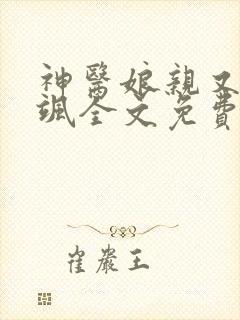 神醫娘親又
颯全文免費
崔嚴王